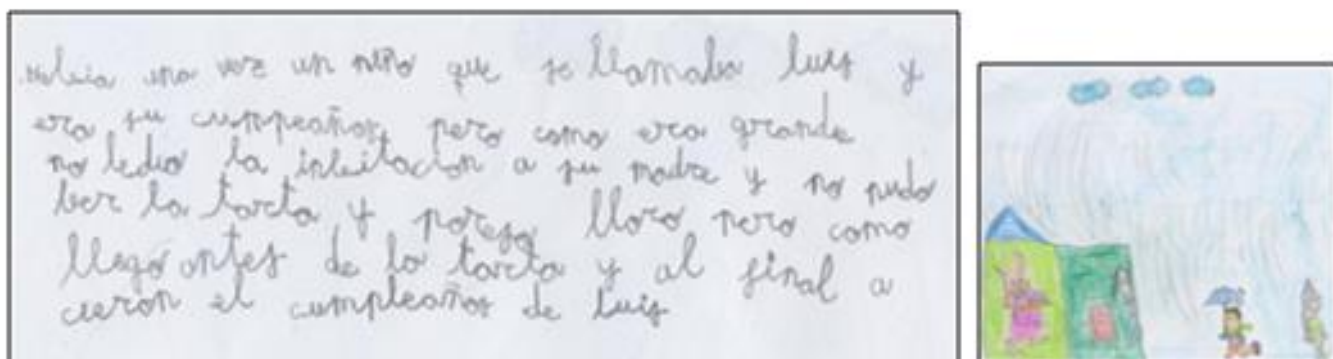 Habia una vez un niño que se llamaba luis y
era su cumpeaños pero como era grande
no ledio la inbitacion a su madre y no pudo
ber la tarta y poreso lloro pero como
llego antes de la tarta y al final a
cieron el cumpleaños de luis